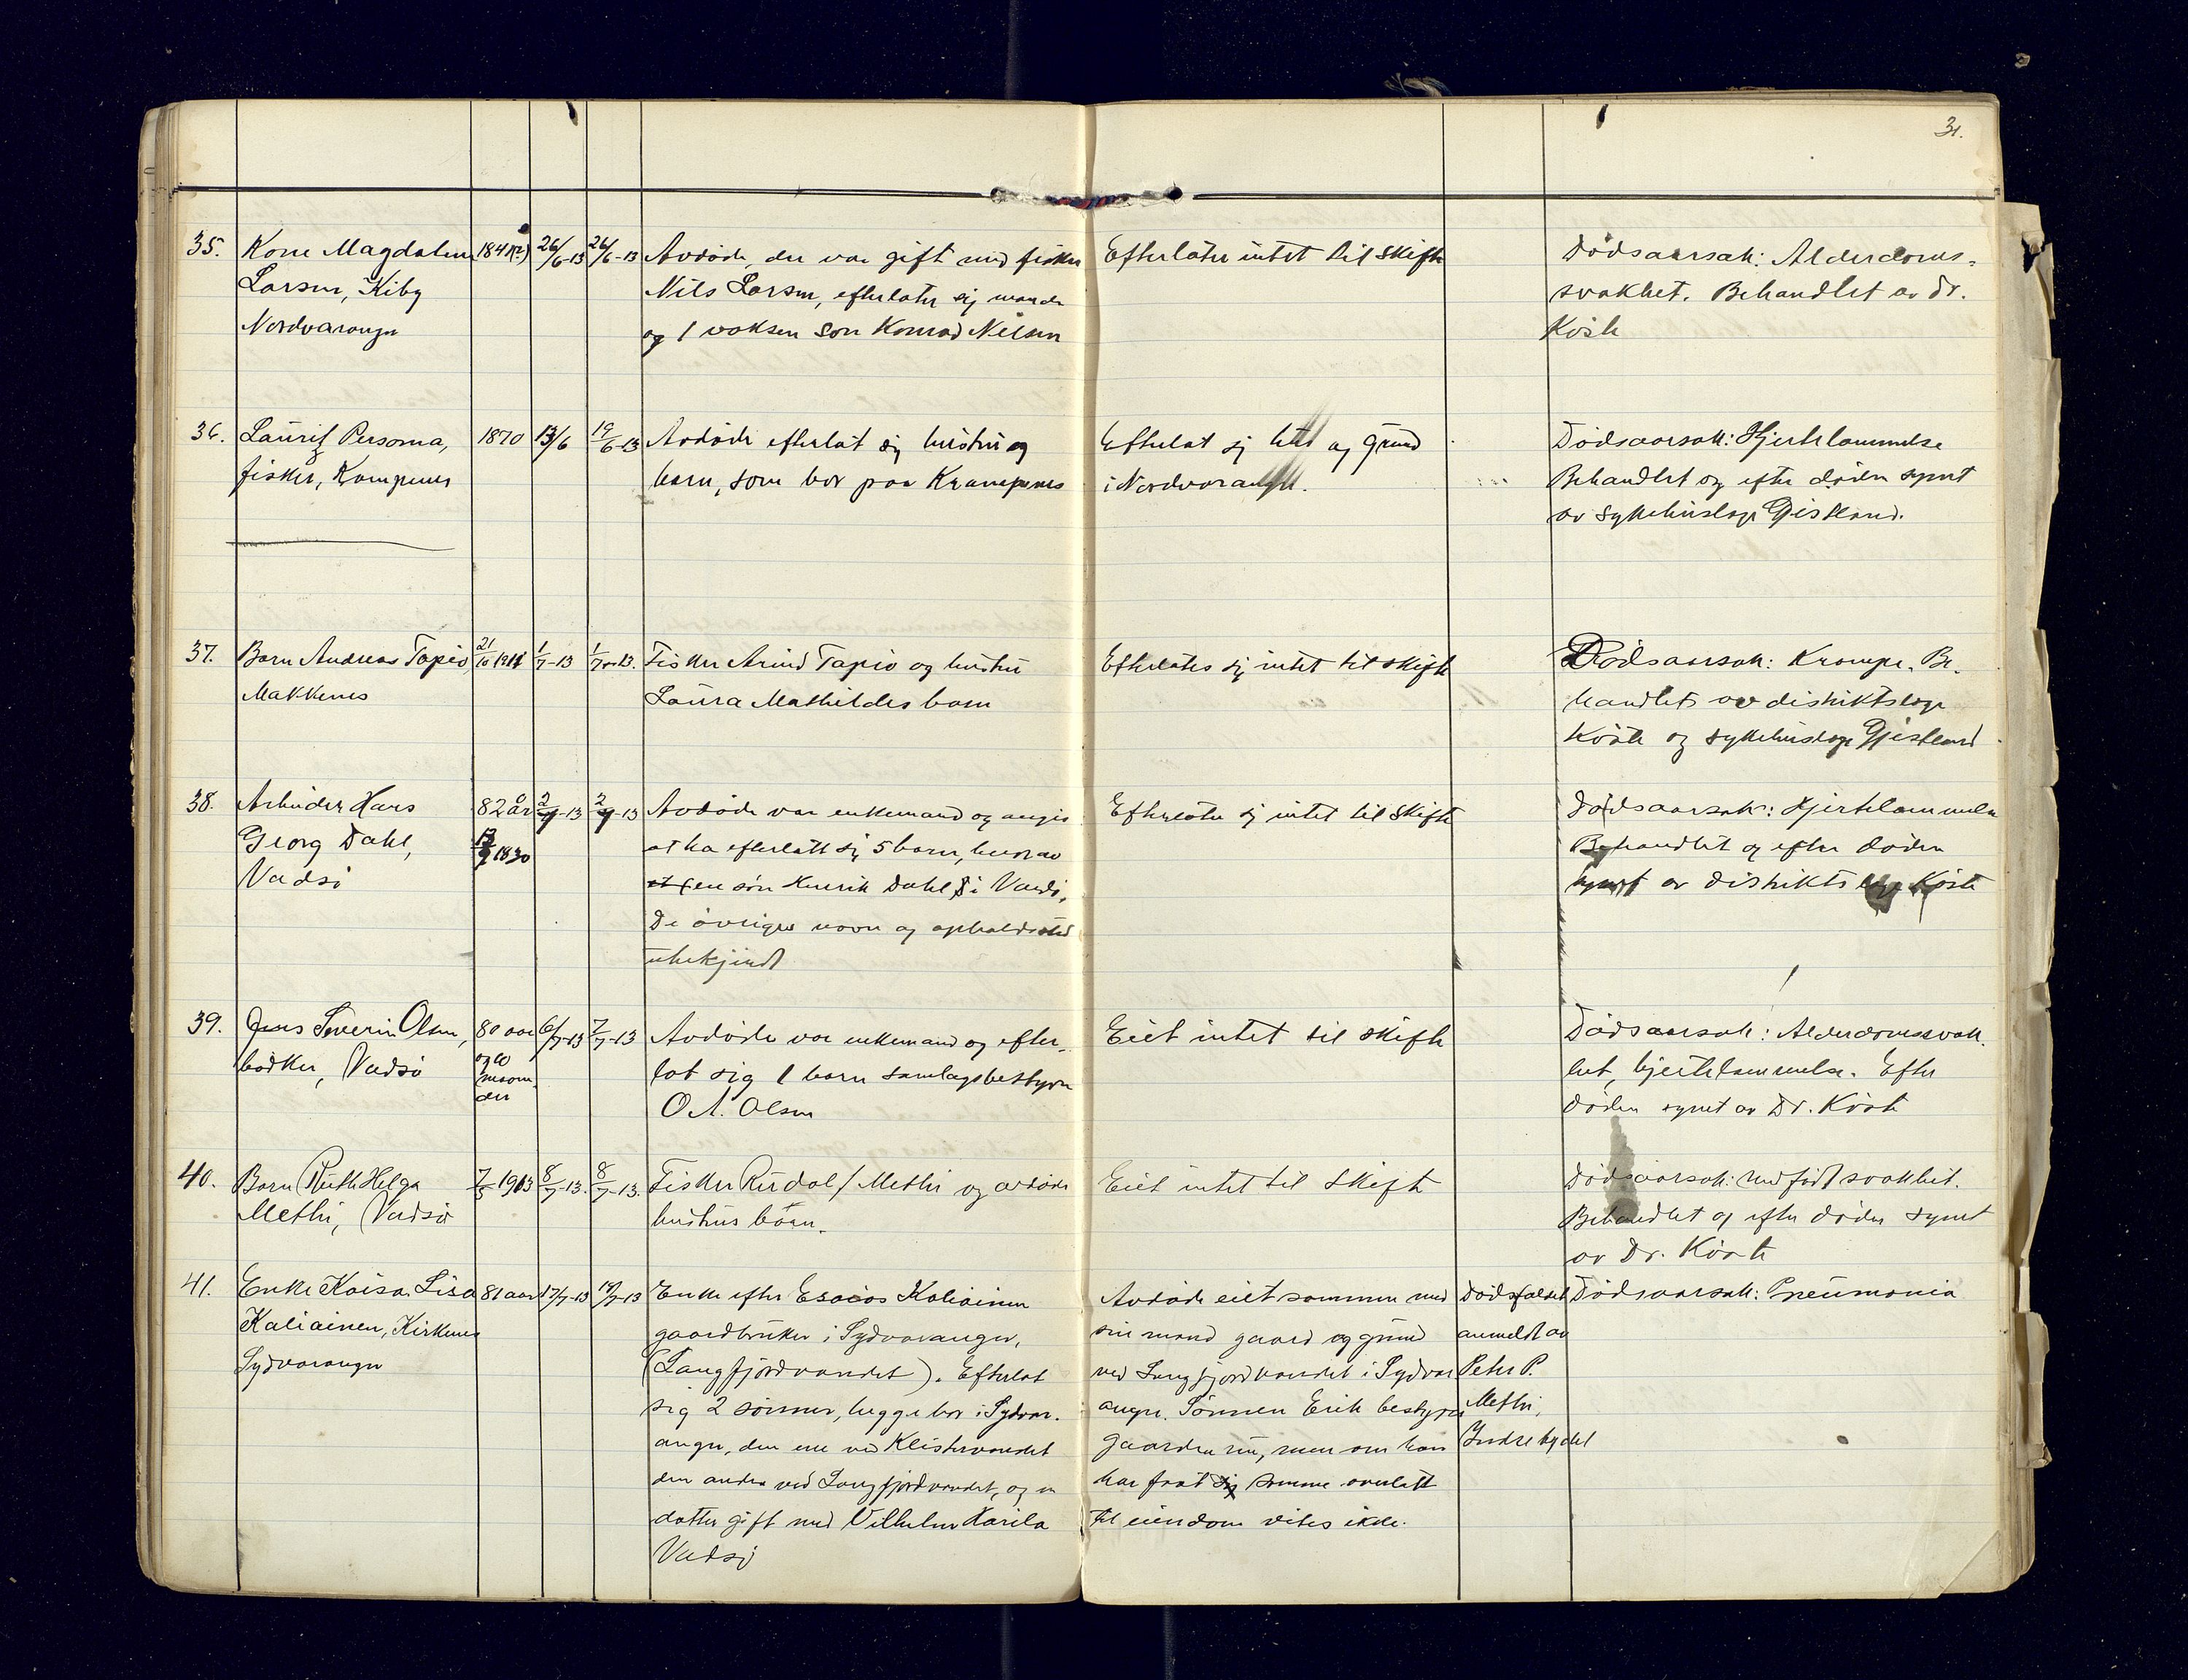 31.
35.
Kone Magdalena
Larsen, Kiby
Nordvaranger
184
26/6-13
26/6-13
Avdöde, der var gift med fisker
Nils Larsen, efterlater sig mand
og 1 voksen sön Konrad Nilsen
Efterlater intet til skifte
Dödsaarsak: Alderdoms-
svakhet. Behandlet av Dr.
Körte
36.
Lauritz Persoma,
fisker, Kampenes
1870
13/6
19/6-13
Avdöde efterlat sig hustru og
barn, som bor paa Krampenes
Efterlat sig litt og grund
i Nordvaranger.
Dödsaarsak: Hjertelammelse
Behandlet og efter döden synet
av sykehuslæge Gjestland.
37.
Barn Andreas Tapio,
Makkenes
21/10 1911
1/7-13
1/7-13.
Fisker Arvid Tapio og hustru
Laura Mathildes barn
Efterlates sig intet til skifte
Dödsaarsak: Krampe. Be-
handlet av distriktslæge
Körte og sykehuslæge Gjestland
38.
Arbeider Hans
Georg Dahl,
Vadsö
82 år
1830
2/7-13
2/7-13
Avdöde var enkemand og angis
at ha efterlatt sig 5 barn, hvorav
en sön Henrik Dahl i Vardö,
De övriges navn og opholdssted
ubekjendt
Efterlater sig intet til skifte
Dödsaarsak: Hjertelammelse
Behandlet og efter döden
synet av distriktslæge Körte
39.
Jens Severin Olsen,
bödker, Vadsö
80 aar
og 10
maan-
der
6/7-13
7/7-13
Avdöde var enkemand og efter-
lot sig 1 barn samlagsbestyrer
O A. Olsen
Eiet intet til skifte
Dödsaarsak: Alderdomssvak-
het, hjertelammelse. Efter
döden synet av Dr. Körte
40.
Barn Ruth Helga
Methi, Vadsö
7/5 1913
8/7-13.
8/7-13.
Fisker Rudolf Methi og avdöde
hustrus barn.
Eiet intet til skifte
Dödsaarsak: Medfödt svakhet.
Behandlet og efter döden synet
av Dr. Körte
41.
Enke Kaisa Lisa
Kaliainen, Kirkenes
Sydvaranger
81 aar
17/7-13
19/7-13
Enke efter Esaias Kaliainen
gaardbruker i Sydvaranger,
(Langfjordvandet). Efterlot
sig 2 sönner, begge bor i Sydvar-
anger, den ene ved Klistervandet
den anden ved Langfjordvandet, og en
datter gift med Vilhelm Karila
Vadsö
Avdöde eiet sammen med
sin mand gaard og grund
ved Langfjordvandet i Sydvar
anger. Sönnen Erik bestyrer
gaarden nu, men om han
har faat samme overlatt
til eiendom vites ikke.
Dödsfaldet
anmeldt av
Peter P.
Methi,
Indrebyen
Dödsaarsak: Pneumonia